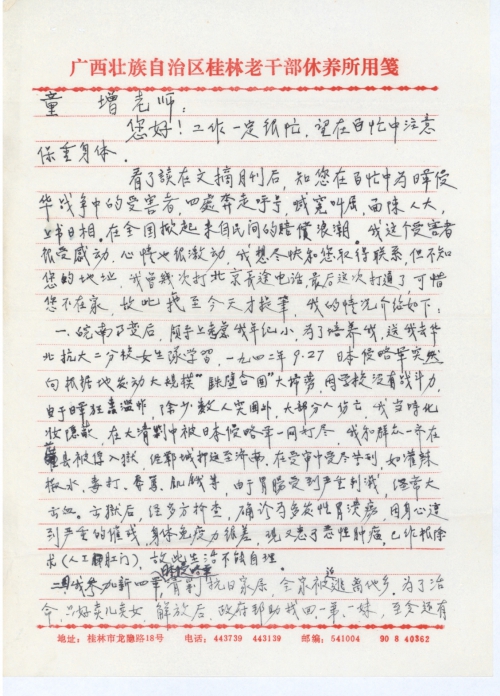 广西壮族自治区桂林老干部休养所用笺
童增老师：
您好！工作一定很忙，望在百忙中注意
保重身体．
看了读在文摘月刊后，知您在百忙中为日军侵
华战争中的受害者，四处奔走呼号，喊冤叫屈，面陈人大，
上书日相．在全国掀起来自民间的赔偿浪潮．我这个受害者
很受感动，心情也很激动，我想尽快和您取得联系，但不知
您的地址，我曾几次打北京长途电话，最后这次打通了，可惜
您不在家，故此拖至今天才投笔，我的情况介绍如下：
一、皖南事变后，领导上考虑我年纪小，为了培养我，送我去华
北抗大二分校女生队学習，一九四二年9.27日本侵略军突然
向根据地发动大规模“铁壁合围”大扫荡，因学校没有战斗力，
由于日军狂轰滥炸，除少数人突围外，大部分人伤亡，我当时化
妆隐蔽，在大清剿中被日本侵略军一网打尽，我和群众一齐在
县被俘入狱，经郓城押送至济南，在受审中受尽苦刑，如灌辣
椒水、毒打、辱骂、肌饿等，由于胃肠受到严重刺激，经常大
出血．出狱后，经多方检查，确诊为多发性胃溃疡，因身心遭
到严重的摧残，身体免疫力很差，现又患了恶性肿瘤，已作根除
术(人工肛门)，故此生活不能自理．
二、我参加新四军，日侵略军清剿抗日家属，全家被迫逃离他乡．为了活
命，只好卖儿卖女，解放后，政府帮助找回一弟、一妹，至今还有
地址：桂林市龙隐路18号 电话：443739 443139 邮编：541004 90 8 40362